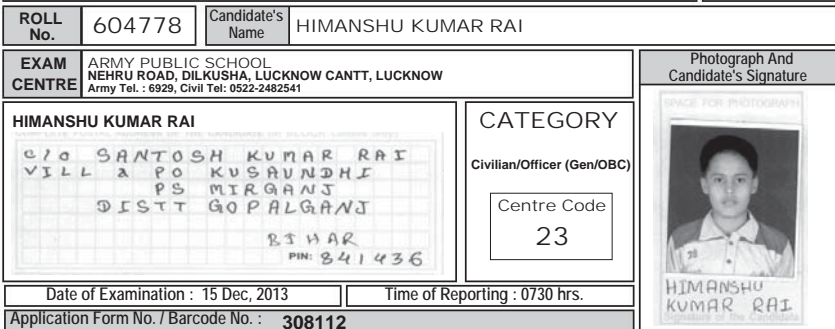 ROLL No. 604778 Candidate's Name HIMANSHU KUMAR RAI
EXAM CENTRE
ARMY PUBLIC SCHOOL
NEHRU ROAD, DILKUSHA, LUCKNOW CANTT, LUCKNOW
Army Tel. : 6929, Civil Tel: 0522-2482541
Photograph And
Candidate's Signature
HIMANSHU KUMAR RAI
c/o SANTOSH KUMAR RAI
VILL a PO KUSAUNDHI
PS MIRGANJ
DISTT GOPALGANJ
BIHAR
PIN: 841436
CATEGORY
Civilian/Officer (Gen/OBC)
Centre Code
23
SPACE FOR PHOTOGRAPH
HIMANSHU
KUMAR RAI
Signature of the Candidate
Date of Examination : 15 Dec, 2013 Time of Reporting : 0730 hrs.
Application Form No. / Barcode No. : 308112